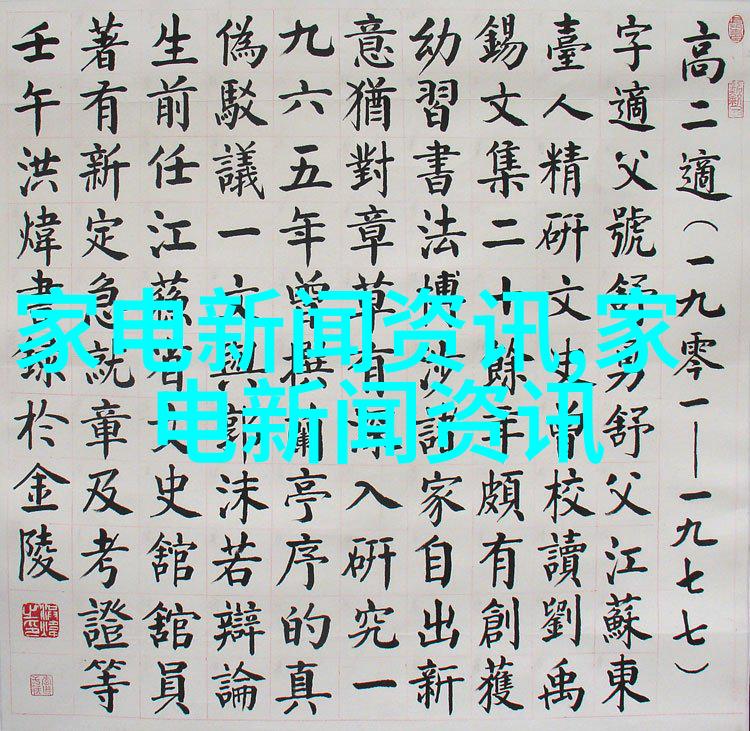 高二適(一九零一—一九七七)
字適父號舒男舒父江蘇東
臺人精研文史校讀劉禹
錫文集二十餘年頗有創獲
幼習書法博涉諸家自出新
意猶對章草有深入研究一
九六五年曾撰蘭亭序的真
偽駁議一文與郭沫若辯論
生前任江蘇省文史館館員
著有新定急就章及考證等
壬午洪煒書錄於金陵
家电新闻资讯,家
电新闻资讯